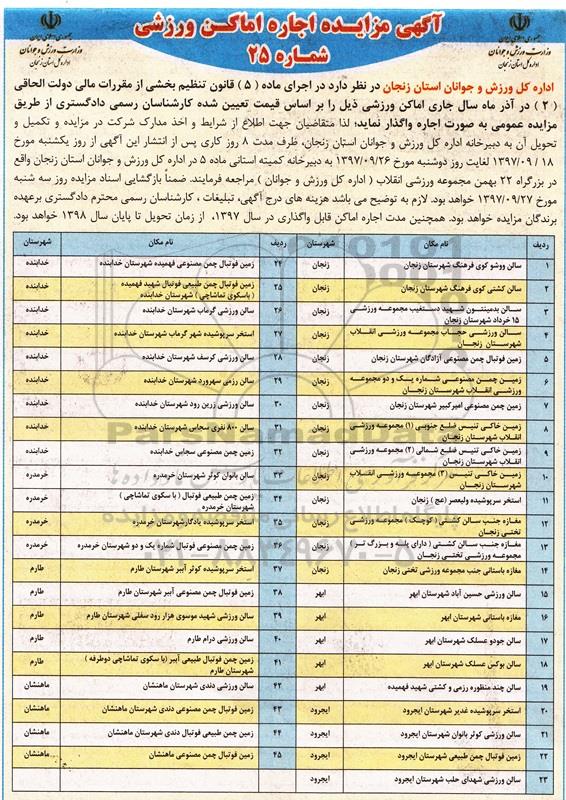 آگهی مزایده اجاره اماکن ورزشی
شماره ۲۵
جمهوری اسلامی ایران
وزارت ورزش و جوانان
اداره کل استان زنجان
جمهوری اسلامی ایران
وزارت ورزش و جوانان
اداره کل استان زنجان
اداره کل ورزش و جوانان استان زنجان در نظر دارد در اجرای ماده ( ۵ ) قانون تنظیم بخشی از مقررات مالی دولت الحاقی
( ۲ ) در آذر ماه سال جاری اماکن ورزشی ذیل را بر اساس قیمت تعیین شده کارشناسان رسمی دادگستری از طریق
مزایده عمومی به صورت اجاره واگذار نماید؛ لذا متقاضیان جهت اطلاع از شرایط و اخذ مدارک شرکت در مزایده و تکمیل و
تحویل آن به دبیرخانه اداره کل ورزش و جوانان استان زنجان، ظرف مدت ۸ روز کاری پس از انتشار این آگهی از روز یکشنبه مورخ
۱۳۹۷/۰۹/۱۸ لغایت روز دوشنبه مورخ ۱۳۹۷/۰۹/۲۶ به دبیرخانه کمیته استانی ماده ۵ در اداره کل ورزش و جوانان استان زنجان واقع
در بزرگراه ۲۲ بهمن مجموعه ورزشی انقلاب ( اداره کل ورزش و جوانان ) مراجعه فرمایند. ضمناً بازگشایی اسناد مزایده روز سه شنبه
مورخ ۱۳۹۷/۰۹/۲۷ خواهد بود. لازم به توضیح می باشد هزینه های درج آگهی، تبلیغات ، کارشناسان رسمی محترم دادگستری برعهده
برندگان مزایده خواهد بود. همچنین مدت اجاره اماکن قابل واگذاری در سال ۱۳۹۷، از زمان تحویل تا پایان سال ۱۳۹۸ خواهد بود.
ردیف نام مکان شهرستان ردیف نام مکان شهرستان
۱ سالن ووشو کوی فرهنگ شهرستان زنجان زنجان ۲۴ زمین فوتبال چمن مصنوعی فهمیده شهرستان خدابنده خدابنده
۲ سالن کشتی کوی فرهنگ شهرستان زنجان زنجان ۲۵ زمین فوتبال چمن طبیعی فوتبال شهید فهمیده
( باسکوی تماشاچی ) شهرستان خدابنده خدابنده
۳ سالن بدمینتون شهید دستغیب مجموعه ورزشی
۱۵ خرداد شهرستان زنجان زنجان ۲۶ سالن ورزشی گرماب شهرستان خدابنده خدابنده
۴ سالن ورزشی حجاب مجموعه ورزشی انقلاب
شهرستان زنجان زنجان ۲۷ استخر سرپوشیده شهر گرماب شهرستان خدابنده خدابنده
۵ زمین فوتبال چمن مصنوعی آزادگان شهرستان زنجان زنجان ۲۸ سالن ورزشی کرسف شهرستان خدابنده خدابنده
۶ زمین چمن مصنوعی شماره یک و دو مجموعه
ورزشی انقلاب شهرستان زنجان زنجان ۲۹ سالن رزمی سهرورد شهرستان خدابنده خدابنده
۷ زمین چمن مصنوعی امیرکبیر شهرستان زنجان زنجان ۳۰ سالن ورزشی زرین رود شهرستان خدابنده خدابنده
۸ زمین خاکی تنیس ضلع جنوبی (۱) مجموعه ورزشی
انقلاب شهرستان زنجان زنجان ۳۱ سالن ۸۰۰ نفری سجاس شهرستان خدابنده خدابنده
۹ زمین خاکی تنیس ضلع شمالی (۲) مجموعه ورزشی
انقلاب شهرستان زنجان زنجان ۳۲ زمین چمن مصنوعی سجاس خدابنده خدابنده
۱۰ زمین خاکی تنیس (۳) مجموعه ورزشی انقلاب
شهرستان زنجان زنجان ۳۳ سالن بانوان کوثر شهرستان خرمدره خرمدره
۱۱ استخر سرپوشیده ولیعصر (عج ) زنجان زنجان ۳۴ زمین چمن طبیعی فوتبال ( با سکوی تماشاچی )
شهرستان خرمدره خرمدره
۱۲ مغازه جنب سالن کشتی ( کوچک ) مجموعه ورزشی
تختی زنجان زنجان ۳۵ استخر سرپوشیده یادگار شهرستان خرمدره خرمدره
۱۳ مغازه جنب سالن کشتی ( دارای پله و بزرگ تر )
مجموعه ورزشی تختی زنجان زنجان ۳۶ زمین چمن مصنوعی فوتبال شماره یک و دو شهرستان خرمدره خرمدره
۱۴ مغازه باستانی جنب مجموعه ورزشی تختی زنجان زنجان ۳۷ استخر سرپوشیده کوثر آببر شهرستان طارم طارم
۱۵ سالن ورزشی حسین آباد شهرستان ابهر ابهر ۳۸ زمین فوتبال چمن مصنوعی آببر شهرستان طارم طارم
۱۶ مغازه باستانی شهرستان ابهر ابهر ۳۹ سالن ورزشی شهید موسوی هزار رود سفلی شهرستان طارم طارم
۱۷ سالن جودو عسلک شهرستان ابهر ابهر ۴۰ سالن ورزشی درام طارم طارم
۱۸ سالن بوکس عسلک شهرستان ابهر ابهر ۴۱ زمین چمن فوتبال طبیعی آببر (با سکوی تماشاچی دوطرفه )
شهرستان طارم طارم
۱۹ سالن چند منظوره رزمی و کشتی شهید فهمیده ابهر ۴۲ سالن ورزشی دندی شهرستان ماهنشان ماهنشان
۲۰ استخر سرپوشیده غدیر شهرستان ایجرود ایجرود ۴۳ زمین فوتبال چمن مصنوعی دندی شهرستان ماهنشان ماهنشان
۲۱ سالن ورزشی کوثر بانوان شهرستان ایجرود ایجرود ۴۴ زمین چمن طبیعی فوتبال دندی شهرستان ماهنشان ماهنشان
۲۲ زمین فوتبال چمن طبیعی شهرستان ایجرود ایجرود ۴۵ زمین فوتبال چمن مصنوعی ماهنشان ماهنشان
۲۳ سالن ورزشی شهدای حلب شهرستان ایجرود ایجرود